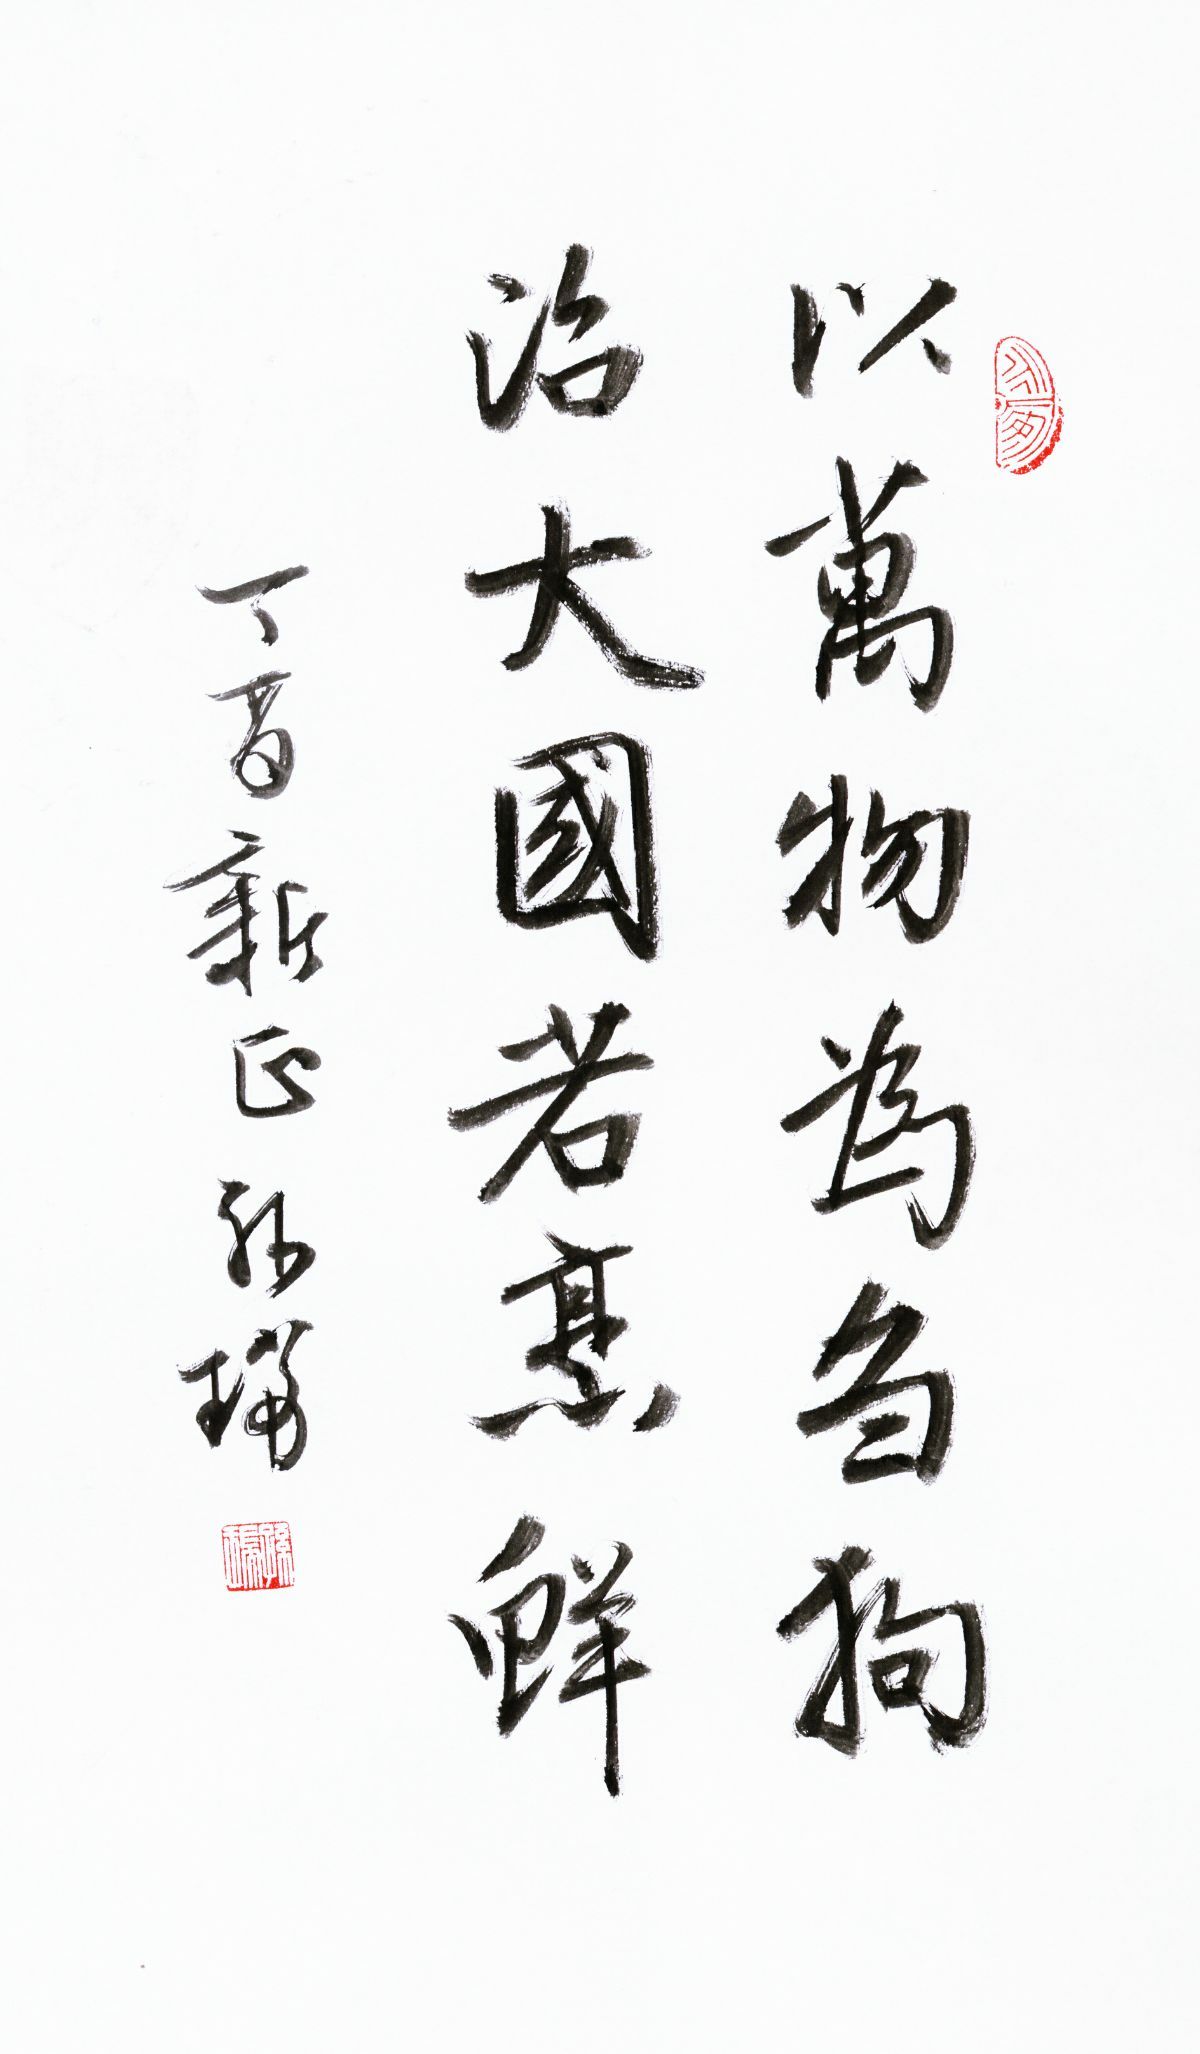 以萬物為刍狗
治大國若烹鮮
丁酉新正